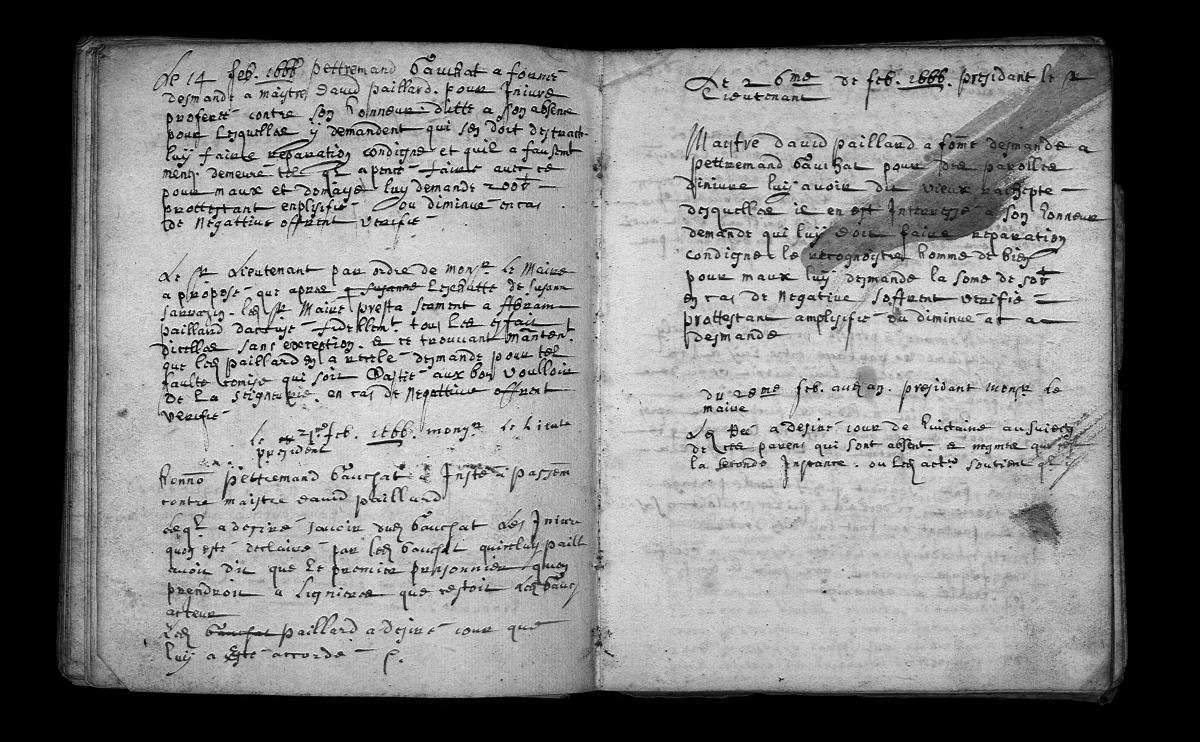 Le 14 feb. 1666 pettremand Gauchat a formé
desmande a maistre david paillard. pour Iniure
proferée contre son honneur. ditte a son absence
pour Lesquelles y demandent qui sen doit destraich
luy fairre reparation condigne et quil a fausemt
ment demeure tel faire avec ce
pour maux et domage luy demande 200
prottestant enplifié ou diminué en cas
de Negattive offrent verifié
Le Sr Lieutenant par ordre de monsr. Le Maire
a proposé que apres Susanne Lexecutté de Susann
Sarrazin. led Sr Maire presta serment a Abram
paillard daccuse fidellemt. tous Les
dicelles sans exception. e ce trouvant mantent.
que led paillard en a recelé desmande pour tel
faulte comise qui soit Chastié aux bon voulloir
de La Seigneurie. en cas de Negattive offrent
verifié
Le 21me feb. 1666. monsr. Le Lieute
president
honno pettremand Gauchat e Insté a passem
contre maistre david paillard
a desiré savoir dud Gauchat des Iniure
quon esté declairé par led Gauchat quicelluy paill
avoit dit que Le premier prisonnier quon
prendroit a Lignieres que cestoit led Gauch
acteur
Led Gauchat paillard a desiré iour que
luy a esté accordé
Le 26me de feb. 1666. presidant le Sr
Lieutenant
Maistre david paillard a formé desmande a
pettremand Gauchat pour des parolles
diniure luy avoir dit vieux
desquelles il en est Interressé a son honneur
demande qui luy doit faire reparation
condigne le recognoistre homme de bien
pour maux luy desmande la some de
en cas de Negative soffrent verifié
prottestant amplifié ou diminué
desmande
du 28me feb. aud an. presidant monsr Le
maire
Led a desiré iour de quinzaine au suiect
de ces parens qui sont absent. e mesme que
la seconde Instance. ou Led actr. soutient